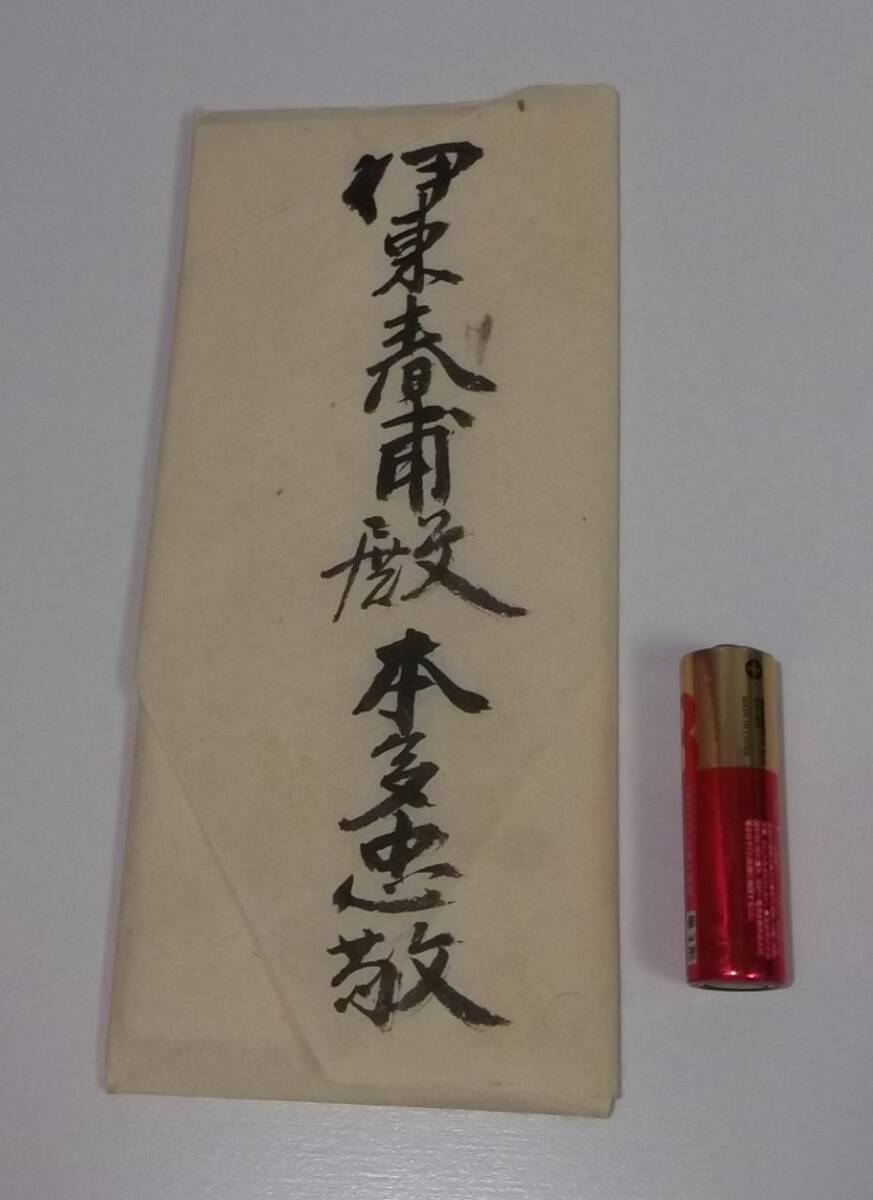 伊東春甫殿 本多忠敬